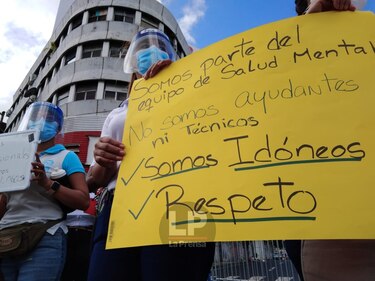 Somos parte del
equipo de Salud Mental
No somos ayudantes
ni Técnicos
✓ Somos Idóneos
✓ Respeto
LP
La Prensa